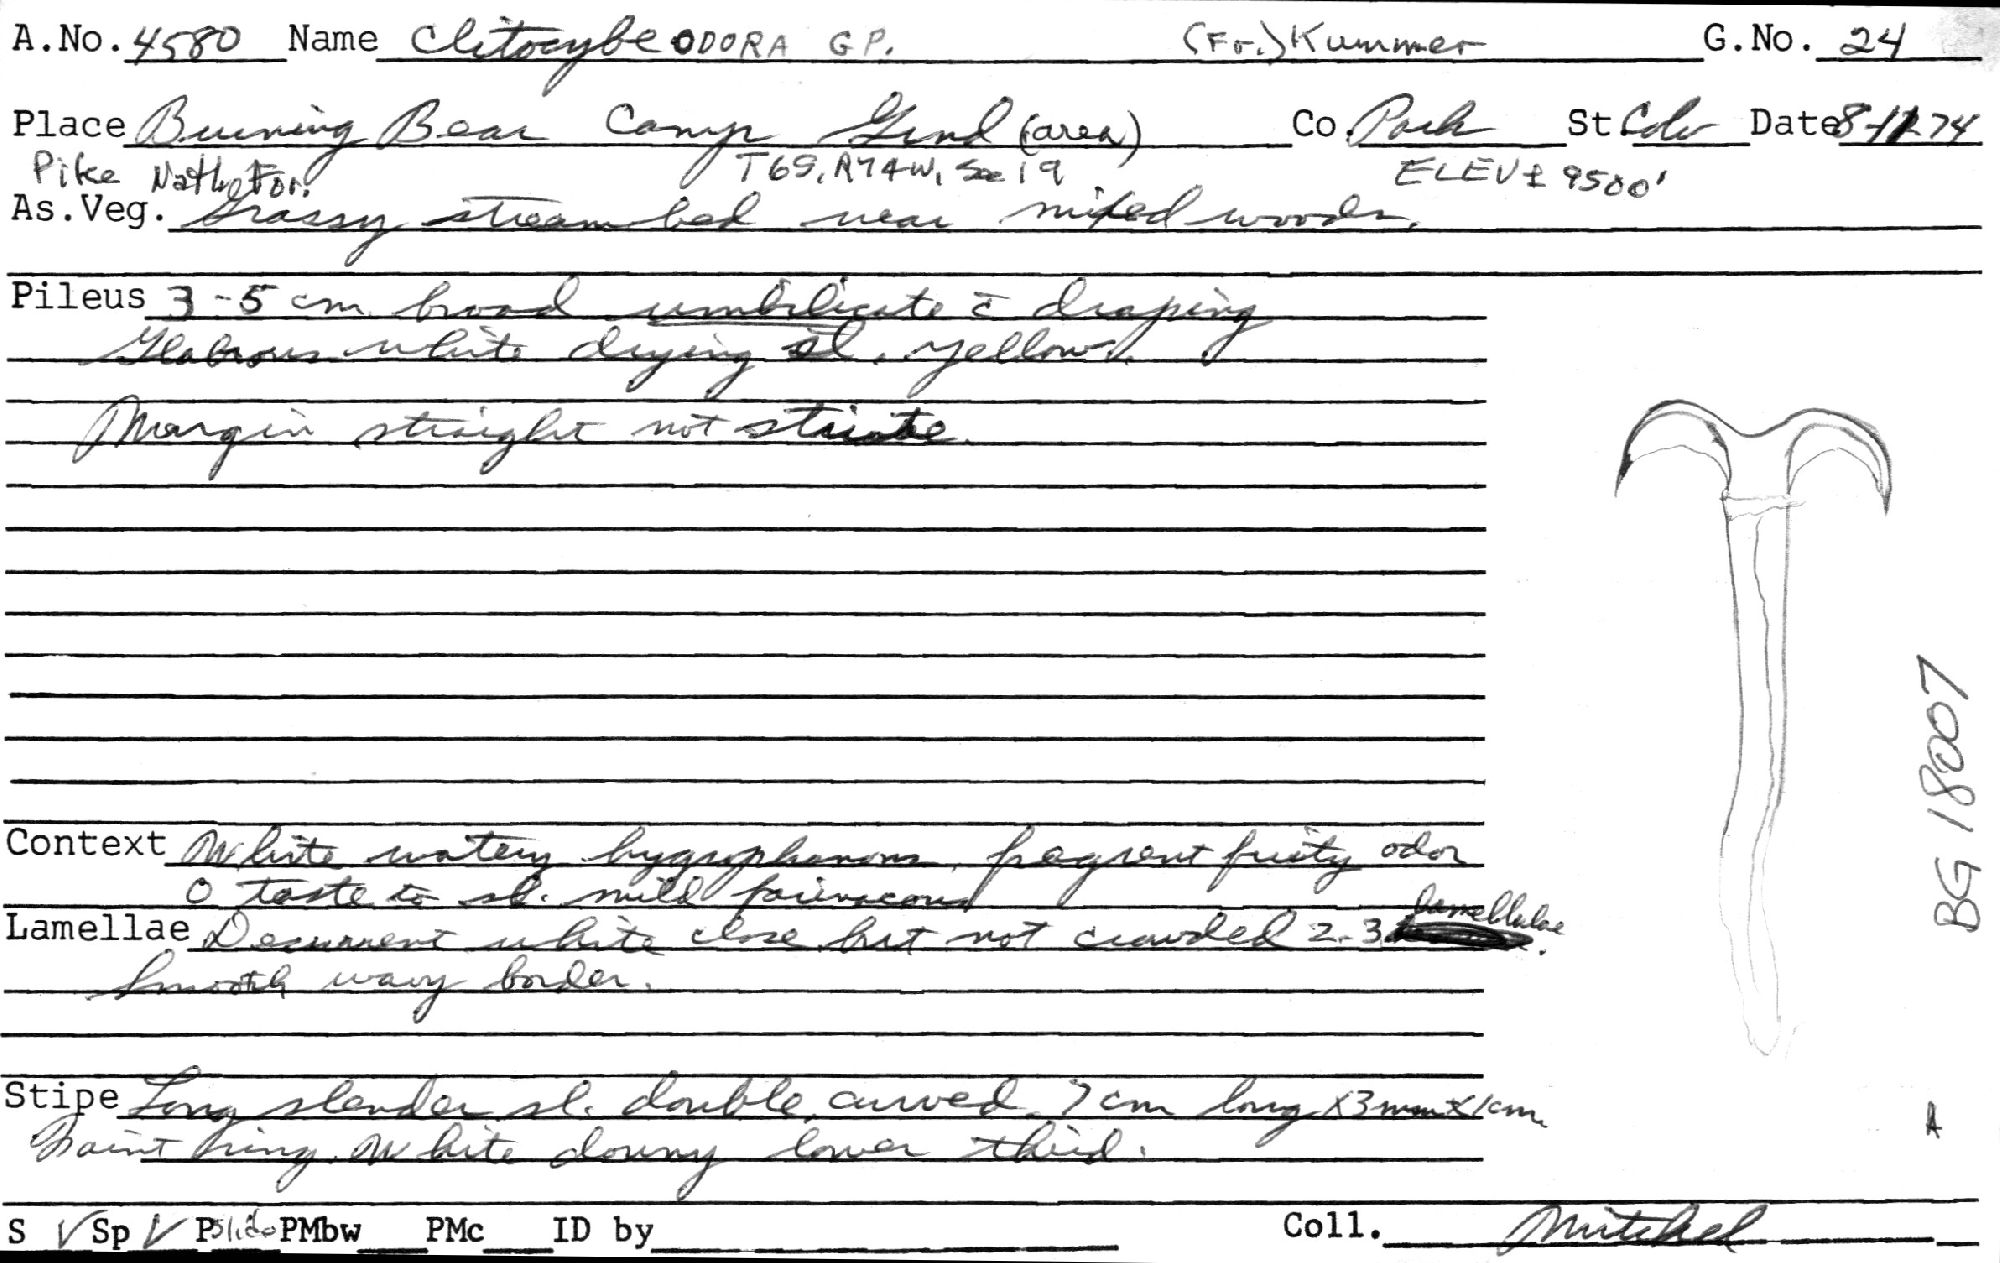 A.No. 4580 Name Clitocybe ODORA GP. (Fr.) Kummer G.No. 24
Place Burning Bear Camp Grnd (area) Co. Park St Colo Date 8-11-74
Pike Natl. For. T6S, R74W, Sec 19 ELEV ± 9500'
As.Veg. Grassy stream bed near mixed woods.
Pileus 3-5 cm broad umbilicate c̄ draping
Glabrous white drying sl. yellow.
Margin straight not striate
Context White watery hygrophanous, fragrent fruity odor
O taste to sl. mild farinaceous
Lamellae Decurrent white close but not crowded 2-3 lamellulae.
Smooth wavy border.
Stipe Long slender sl. double curved 7 cm long x 3 mm x 1 cm
Faint ring. White downy lower third.
S ✓ Sp ✓ P slide PMbw PMc ID by Coll. Mitchel
BG 18007
A